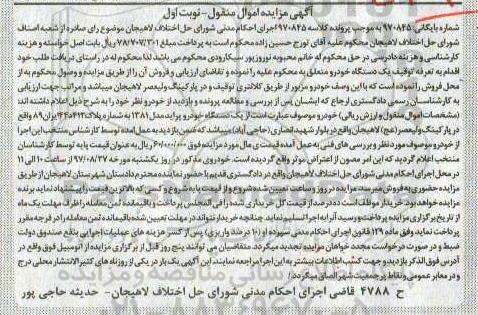 آگهی مزایده اموال منقول - نوبت اول
شماره بایگانی: ۹۷۰۸۴۵ به موجب پرونده کلاسه ۹۷۰۸۴۵ اجرای احکام مدنی شورای حل اختلاف لاهیجان موضوع رای صادره از شعبه اصناف
شورای حل اختلاف لاهیجان محکوم علیه آقای تورج حسین زاده محکوم است به پرداخت مبلغ ۷۸/۷۰۷/۳۰۱ ریال بابت اصل خواسته و هزینه
کارشناسی و هزینه دادرسی در حق محکوم له خانم محبوبه نوروزپور سیگارودی محکوم می باشد لذا محکوم له در راستای دریافت طلب خود
اقدام به تعرفه توقیف یک دستگاه خودرو متعلق به محکوم علیه را نموده و تقاضای ارزیابی و فروش آن را از طریق مزایده و وصول محکوم به از
محل فروش را نموده است که با این وصف خودرو مزبور از طریق کلانتری توقیف و در پارکینگ ولیعصر لاهیجان میباشد و مراتب جهت ارزیابی
به کارشناسان رسمی دادگستری ارجاع که ایشان پس از بررسی و مطالعه پرونده و بازدید از خودرو نظر خود را به شرح ذیل اعلام داشته اند:
(مشخصات اموال منقول و ارزش ریالی) خودرو موصوف عبارت است از یک دستگاه خودرو پراید مدل ۱۳۸۱ به شماره پلاک ایران ۸۹ واقع
در پارکینگ ولیعصر (عج) لاهیجان واقع در بلوار شهید انصاری (حاجی آباد) میباشد که ضمن بازدید به عمل آمده توسط کارشناس منتخب این اجرا
از خودرو موصوف مورد نظر و بررسی های فنی به عمل آمده قیمت مال مورد مزایده ریال به عنوان قیمت پایه توسط کارشناس
منتخب اعلام گردید که این امر مصون از اعتراض موثر واقع گردیده است. خودروی مذکور در روز یکشنبه مورخه ۹۷/۰۸/۲۷ از ساعت ۱۰ الی ۱۱
در محل اجرای احکام مدنی شورای حل اختلاف لاهیجان واقع در دادگستری قدیم با حضور نماینده محترم دادستان شهرستان لاهیجان از طریق
مزایده حضوری به فروش میرسد. مزایده در روز و ساعت تعیین شده شروع و از قیمت پایه شروع و کسی که بالاترین قیمت را پیشنهاد نماید برنده
خواهد بود. خریدار موظف است ده درصد از قیمت کل خریداری شده را فی المجلس پرداخت و باقیمانده ثمن معامله را ظرف مهلت یک ماه
از تاریخ برگزاری مزایده پرداخت و رسید آنرا به اجرا تسلیم نماید. چنانچه خریدار نتواند در مهلت تعیین شده باقیمانده ثمن معامله را در فرجه مقرر
پرداخت نماید، وفق ماده ۱۲۹ قانون اجرای احکام مدنی سپرده او (۱۰ درصد واریزی) پس از کسر هزینه های عملیات اجرایی بنفع صندوق دولت
ضبط و در صورت درخواست مجدد خواهان مزایده تجدید میگردد. متقاضیان می توانند پنج روز قبل از برگزاری مزایده از اتومبیل فوق واقع در
آدرس فوق الذکر بازدید و جهت کسب اطلاعات بیشتر به این اجرا مراجعه نمایند. این آگهی یک بار در یکی از روزنامه های کثیرالانتشار محلی درج
و در معابر عمومی و نقاط پرجمعیت شهر الصاق میگردد/
ح ۴۷۸۸ قاضی اجرای احکام مدنی شورای حل اختلاف لاهیجان - حدیثه حاجی پور